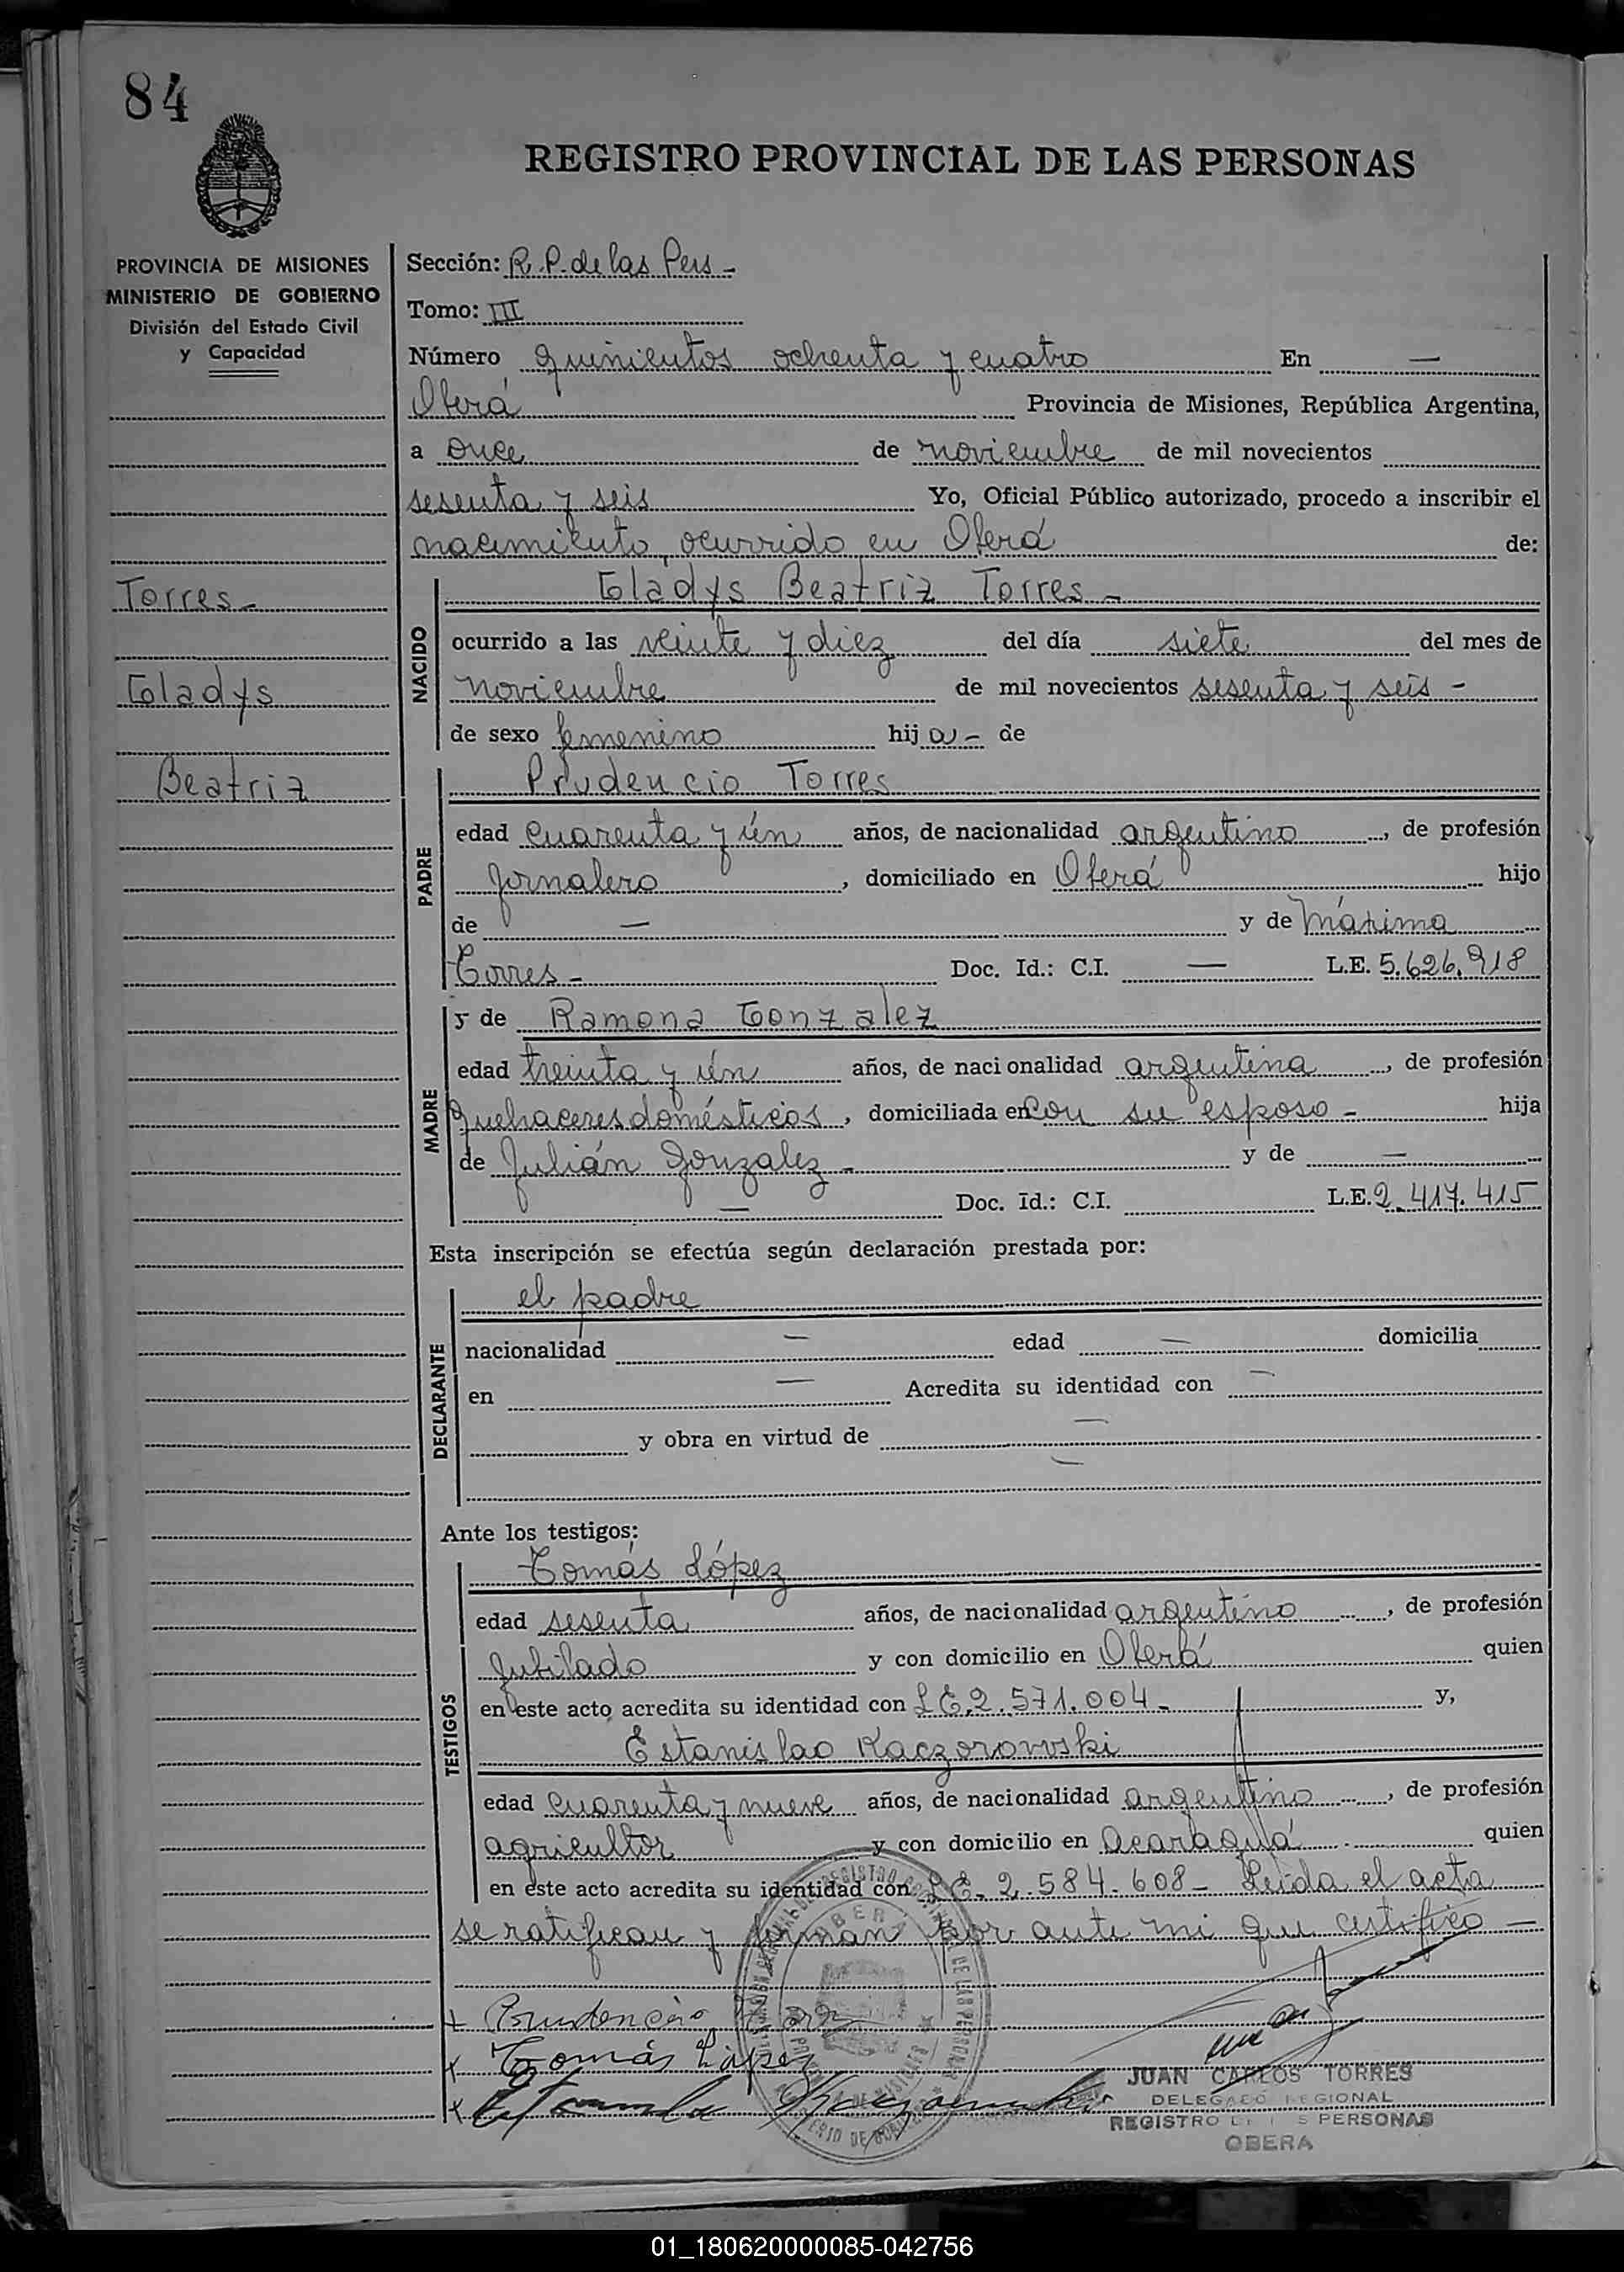 84
REGISTRO PROVINCIAL DE LAS PERSONAS
PROVINCIA DE MISIONES
MINISTERIO DE GOBIERNO
División del Estado Civil
y Capacidad
Torres-
Gladys
Beatriz
Sección: R.P. de las Pers-
Tomo: III
Número quinientos ochenta y cuatro En —
Oberá Provincia de Misiones, República Argentina,
a once de noviembre de mil novecientos
sesenta y seis Yo, Oficial Público autorizado, procedo a inscribir el
nacimiento, ocurrido en Oberá de:
NACIDO
Gladys Beatriz Torres-
ocurrido a las veinte y diez del día siete del mes de
noviembre de mil novecientos sesenta y seis-
de sexo femenino hija- de
PADRE
Prudencio Torres
edad cuarenta y un años, de nacionalidad argentino, de profesión
jornalero, domiciliado en Oberá hijo
de — y de Máxima
Torres- Doc. Id.: C.I. — L.E. 5.626.918
MADRE
y de Ramona Gonzalez
edad treinta y un años, de nacionalidad argentina, de profesión
quehaceres domésticos, domiciliada en con su esposo- hija
de Julián Gonzalez- y de —
— Doc. Id.: C.I. L.E. 2.417.415
Esta inscripción se efectúa según declaración prestada por:
DECLARANTE
el padre
nacionalidad — edad — domicilia
en — Acredita su identidad con —
y obra en virtud de —
—
Ante los testigos:
TESTIGOS
Tomás López
edad sesenta años, de nacionalidad argentino, de profesión
jubilado y con domicilio en Oberá quien
en este acto acredita su identidad con L.E. 2.571.004- y,
Estanislao Kaczorowski
edad cuarenta y nueve años, de nacionalidad argentino, de profesión
agricultor y con domicilio en Acaraguá quien
en este acto acredita su identidad con L.E. 2.584.608- Leída el acta
se ratifican y firman por ante mi que certifico —
+ Prudencio
x Tomás López
x
OBERA
JUAN CARLOS TORRES
DELEGADO REGIONAL
REGISTRO PERSONAS
OBERA
01_180620000085-042756